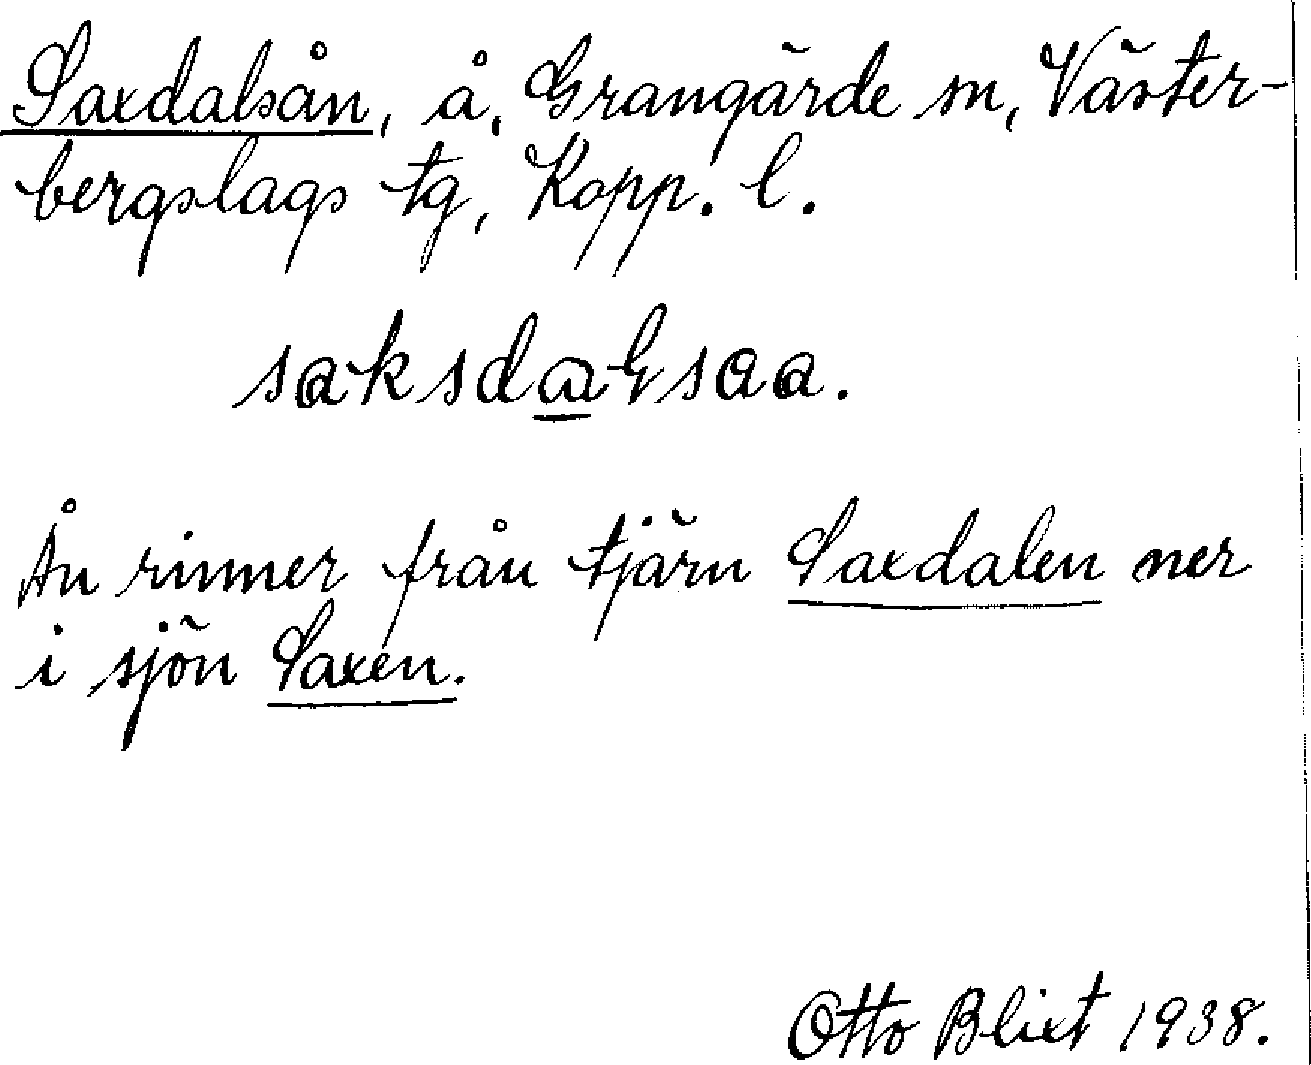 Saxdalsån, å, Grangärde sn, Väster-
bergslags tg, Kopp. l.
Ån rinner från tjärn Saxdalen ner
i sjön Saxen.
Otto Blixt 1938.